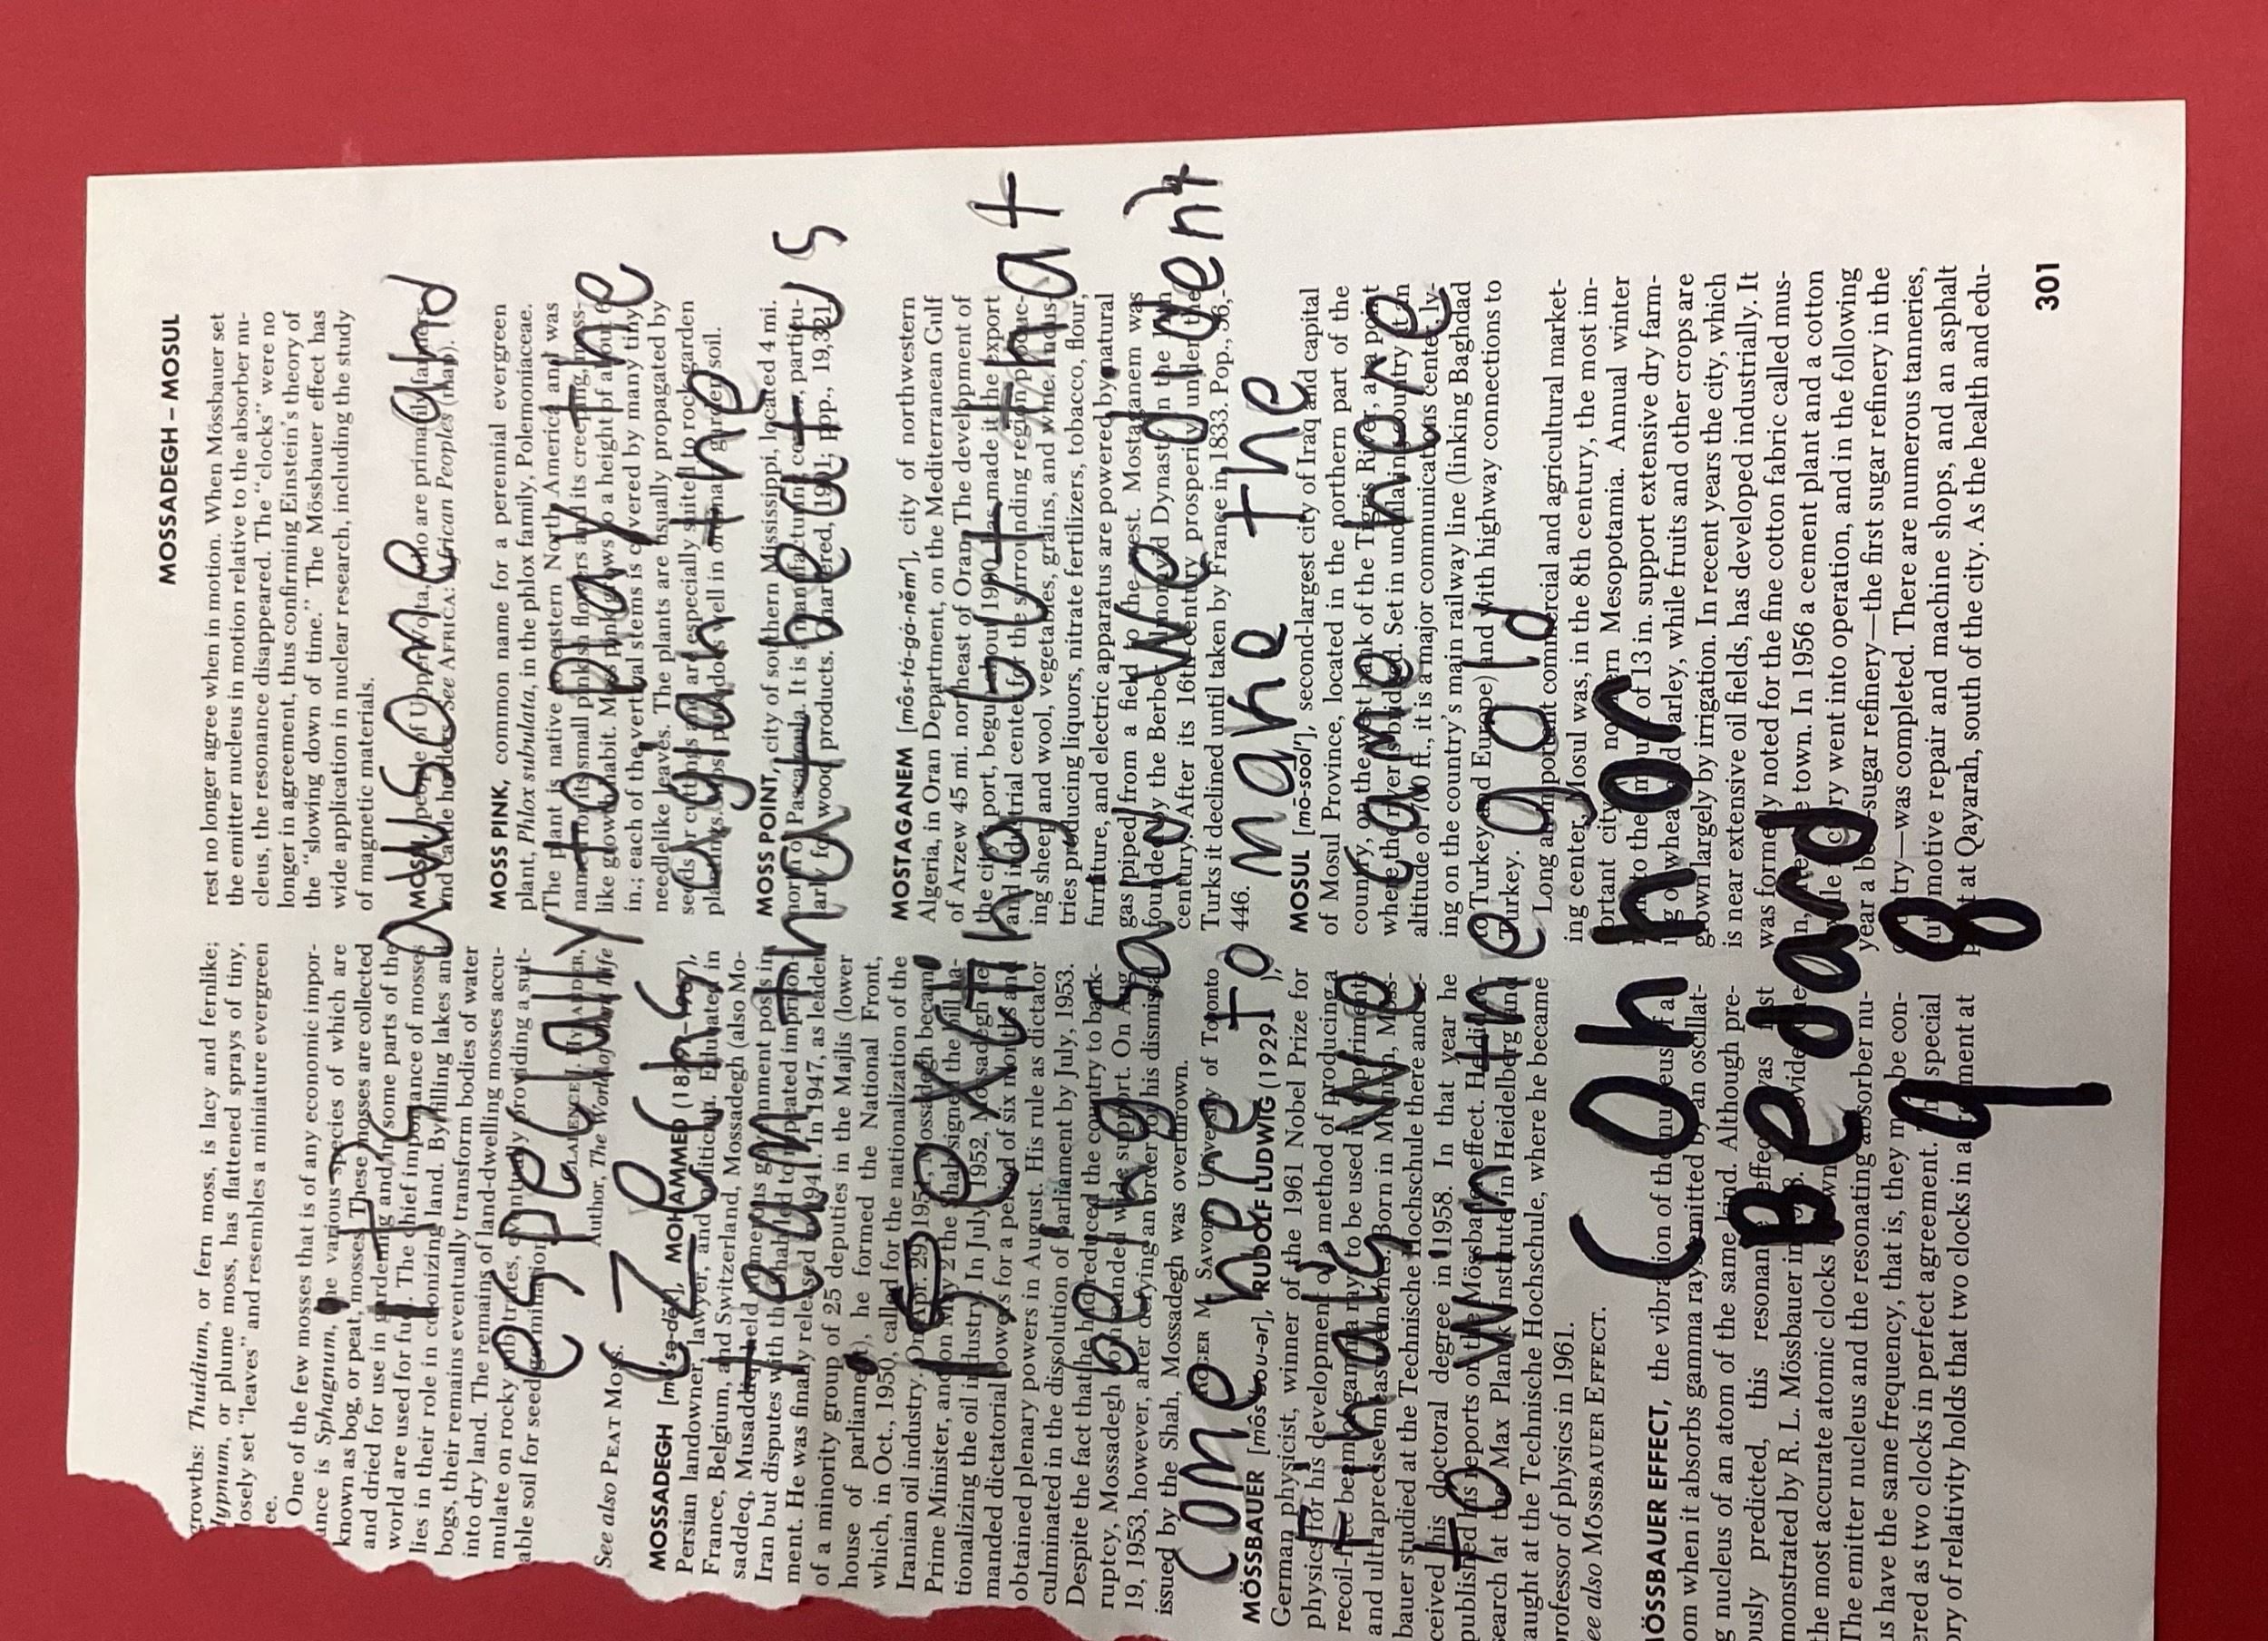 MOSSADEGH – MOSUL
growths: Thuidium, or fern moss, is lacy and fernlike;
Hypnum, or plume moss, has flattened sprays of tiny,
losely set "leaves" and resembles a miniature evergreen
ee.
One of the few mosses that is of any economic impor-
tance is Sphagnum, the various species of which are
known as bog, or peat, mosses. These mosses are collected
and dried for use in gardening and in some parts of the
world are used for fuel. The chief importance of mosses
lies in their role in colonizing land. By filling lakes and
bogs, their remains eventually transform bodies of water
into dry land. The remains of land-dwelling mosses accu-
mulate on rocky substrates, eventually providing a suit-
able soil for seed germination.
CLARENCE J. HYLANDER,
Author, The World of Plant Life
See also PEAT MOSS.
MOSSADEGH, MOHAMMED
Persian landowner, lawyer, and politician. Educated in
France, Belgium, and Switzerland, Mossadegh (also Mo-
saddeq, Musaddiq) held numerous government posts in
Iran but disputes with the Shah led to repeated imprison-
ment. He was finally released in 1941. In 1947, as leader
of a minority group of 25 deputies in the Majlis (lower
house of parliament), he formed the National Front,
which, in Oct., 1950, called for the nationalization of the
Iranian oil industry. On Apr. 29, 1951, Mossadegh became
Prime Minister, and on May 2 the Shah signed the bill na-
tionalizing the oil industry. In July, 1952, Mossadegh de-
manded dictatorial powers for a period of six months and
obtained plenary powers in August. His rule as dictator
culminated in the dissolution of parliament by July, 1953.
Despite the fact that he had reduced the country to bank-
ruptcy, Mossadegh commanded wide support. On Aug.
19, 1953, however, after defying an order for his dismissal
issued by the Shah, Mossadegh was overthrown.
ROGER M. SAVORY, University of Toronto
MÖSSBAUER [môs'bou-ər], RUDOLF LUDWIG (1929– ),
German physicist, winner of the 1961 Nobel Prize for
physics for his development of a method of producing a
recoil-free beam of gamma rays to be used in experiments
and ultraprecise measurements. Born in Munich, Möss-
bauer studied at the Technische Hochschule there and re-
ceived his doctoral degree in 1958. In that year he
published his reports on the Mössbauer effect. He did re-
search at the Max Planck Institute in Heidelberg and
taught at the Technische Hochschule, where he became
professor of physics in 1961.
See also MÖSSBAUER EFFECT.
MÖSSBAUER EFFECT, the vibration of the nucleus of an
om when it absorbs gamma rays emitted by an oscillat-
g nucleus of an atom of the same kind. Although pre-
ously predicted, this resonance effect was first
monstrated by R. L. Mössbauer in 1958.
the most accurate atomic clocks known.
The emitter nucleus and the resonating absorber nu-
us have the same frequency, that is, they may be con-
ered as two clocks in perfect agreement. The special
ory of relativity holds that two clocks in agreement at
rest no longer agree when in motion. When Mössbauer set
the emitter nucleus in motion relative to the absorber nu-
cleus, the resonance disappeared. The "clocks" were no
longer in agreement, thus confirming Einstein's theory of
the "slowing down of time." The Mössbauer effect has
wide application in nuclear research, including the study
of magnetic materials.
MOSSI, people of Upper Volta, who are primarily farmers
and cattle herders. See AFRICA: African Peoples (map).
MOSS PINK, common name for a perennial evergreen
plant, Phlox subulata, in the phlox family, Polemoniaceae.
The plant is native to eastern North America and was
named for its small pinkish flowers and its creeping, moss-
like growth habit. Moss pink grows to a height of about 6
in.; each of the vertical stems is covered by many tiny
needlelike leaves. The plants are usually propagated by
seeds or cuttings and are especially suited to rock garden
plantings. Moss pink does well in ordinary garden soil.
MOSS POINT, city of southern Mississippi, located 4 mi.
north of Pascagoula. It is a manufacturing center, particu-
larly for wood products. Chartered, 1901; pop., 19,321.
MOSTAGANEM [môs-tà-gà-něm'], city of northwestern
Algeria, in Oran Department, on the Mediterranean Gulf
of Arzew 45 mi. northeast of Oran. The development of
the city's port, begun about 1900, has made it the export
and industrial center for the surrounding region, produc-
ing sheep and wool, vegetables, grains, and wine. Indus-
tries producing liquors, nitrate fertilizers, tobacco, flour,
furniture, and electric apparatus are powered by natural
gas piped from a field to the west. Mostaganem was
founded by the Berber Almoravid Dynasty in the 11th
century. After its 16th-century prosperity under the
Turks it declined until taken by France in 1833. Pop., 56,-
446.
MOSUL [mō-sōōl'], second-largest city of Iraq and capital
of Mosul Province, located in the northern part of the
country, on the west bank of the Tigris River, at a point
where the river is bridged. Set in undulating country at an
altitude of 700 ft., it is a major communications center, ly-
ing on the country's main railway line (linking Baghdad
to Turkey and Europe) and with highway connections to
Turkey.
Long an important commercial and agricultural market-
ing center, Mosul was, in the 8th century, the most im-
portant city in northern Mesopotamia. Annual winter
to the amount of 13 in. support extensive dry farm-
ing of wheat and barley, while fruits and other crops are
grown largely by irrigation. In recent years the city, which
is near extensive oil fields, has developed industrially. It
was formerly noted for the fine cotton fabric called mus-
lin, town. In 1956 a cement plant and a cotton
textile factory went into operation, and in the following
year a beet-sugar refinery—the first sugar refinery in the
country—was completed. There are numerous tanneries,
automotive repair and machine shops, and an asphalt
plant at Qayarah, south of the city. As the health and edu-
301
It's awsome and
especially to play the
Czechs agian the
team that beat us
is exciting but that
being said we didn't
Come here to make the
finals we came here
to win the gold
Connor
Bedard
98